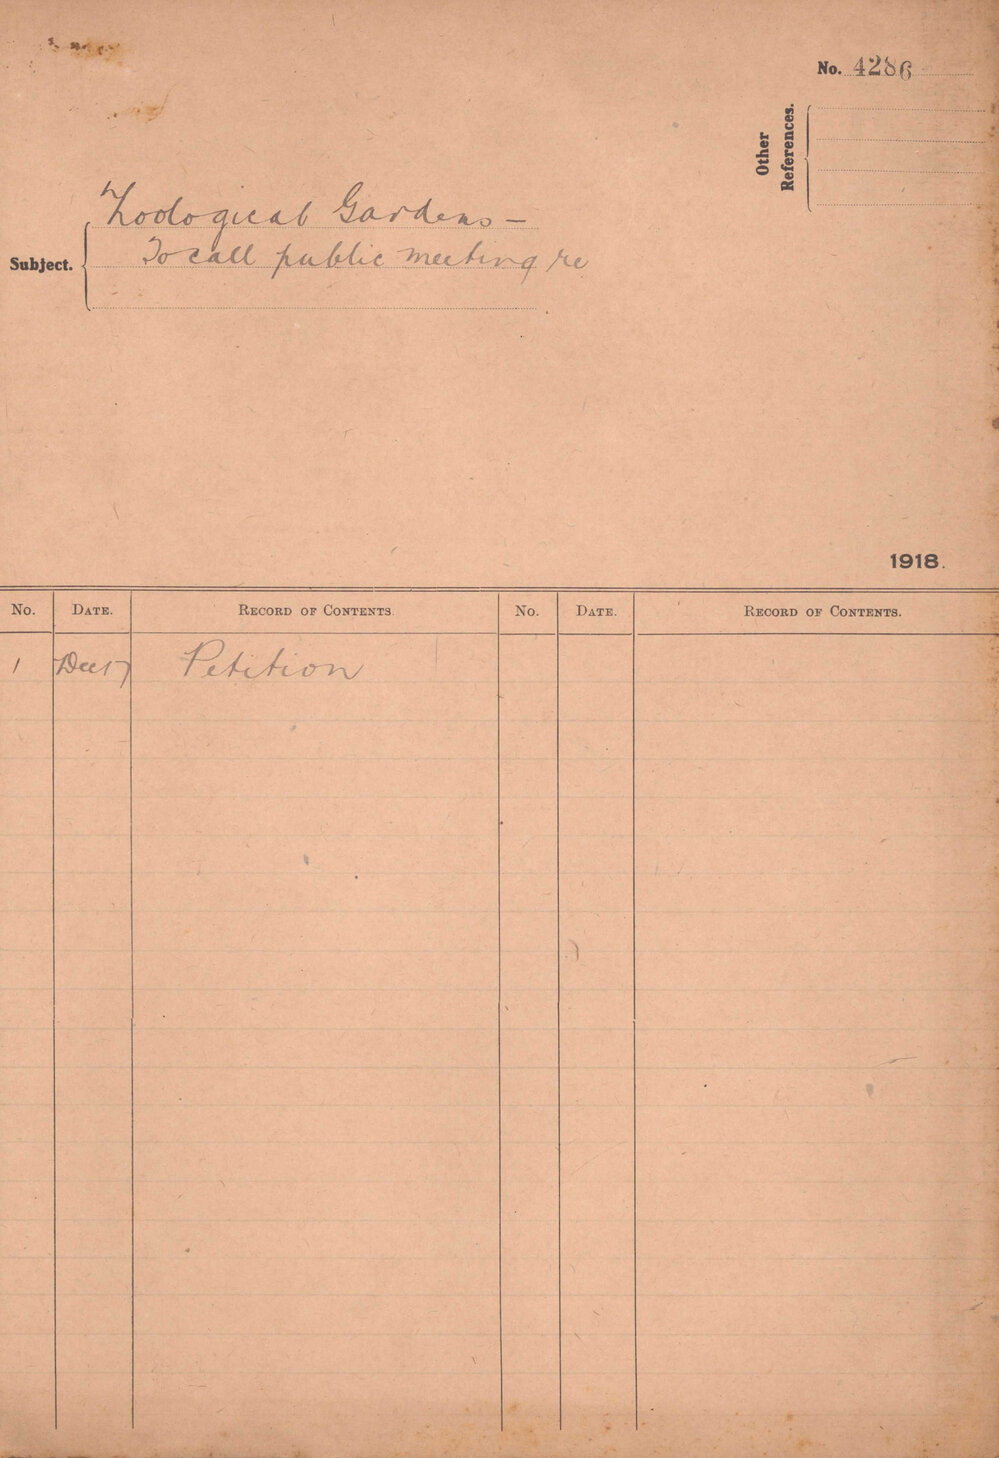 No. 4286
Other References.
Subject.
Zoological Gardens -
To call public meeting re
1918.
No. DATE. RECORD OF CONTENTS. No. DATE. RECORD OF CONTENTS.
1 Dec 17 Petition